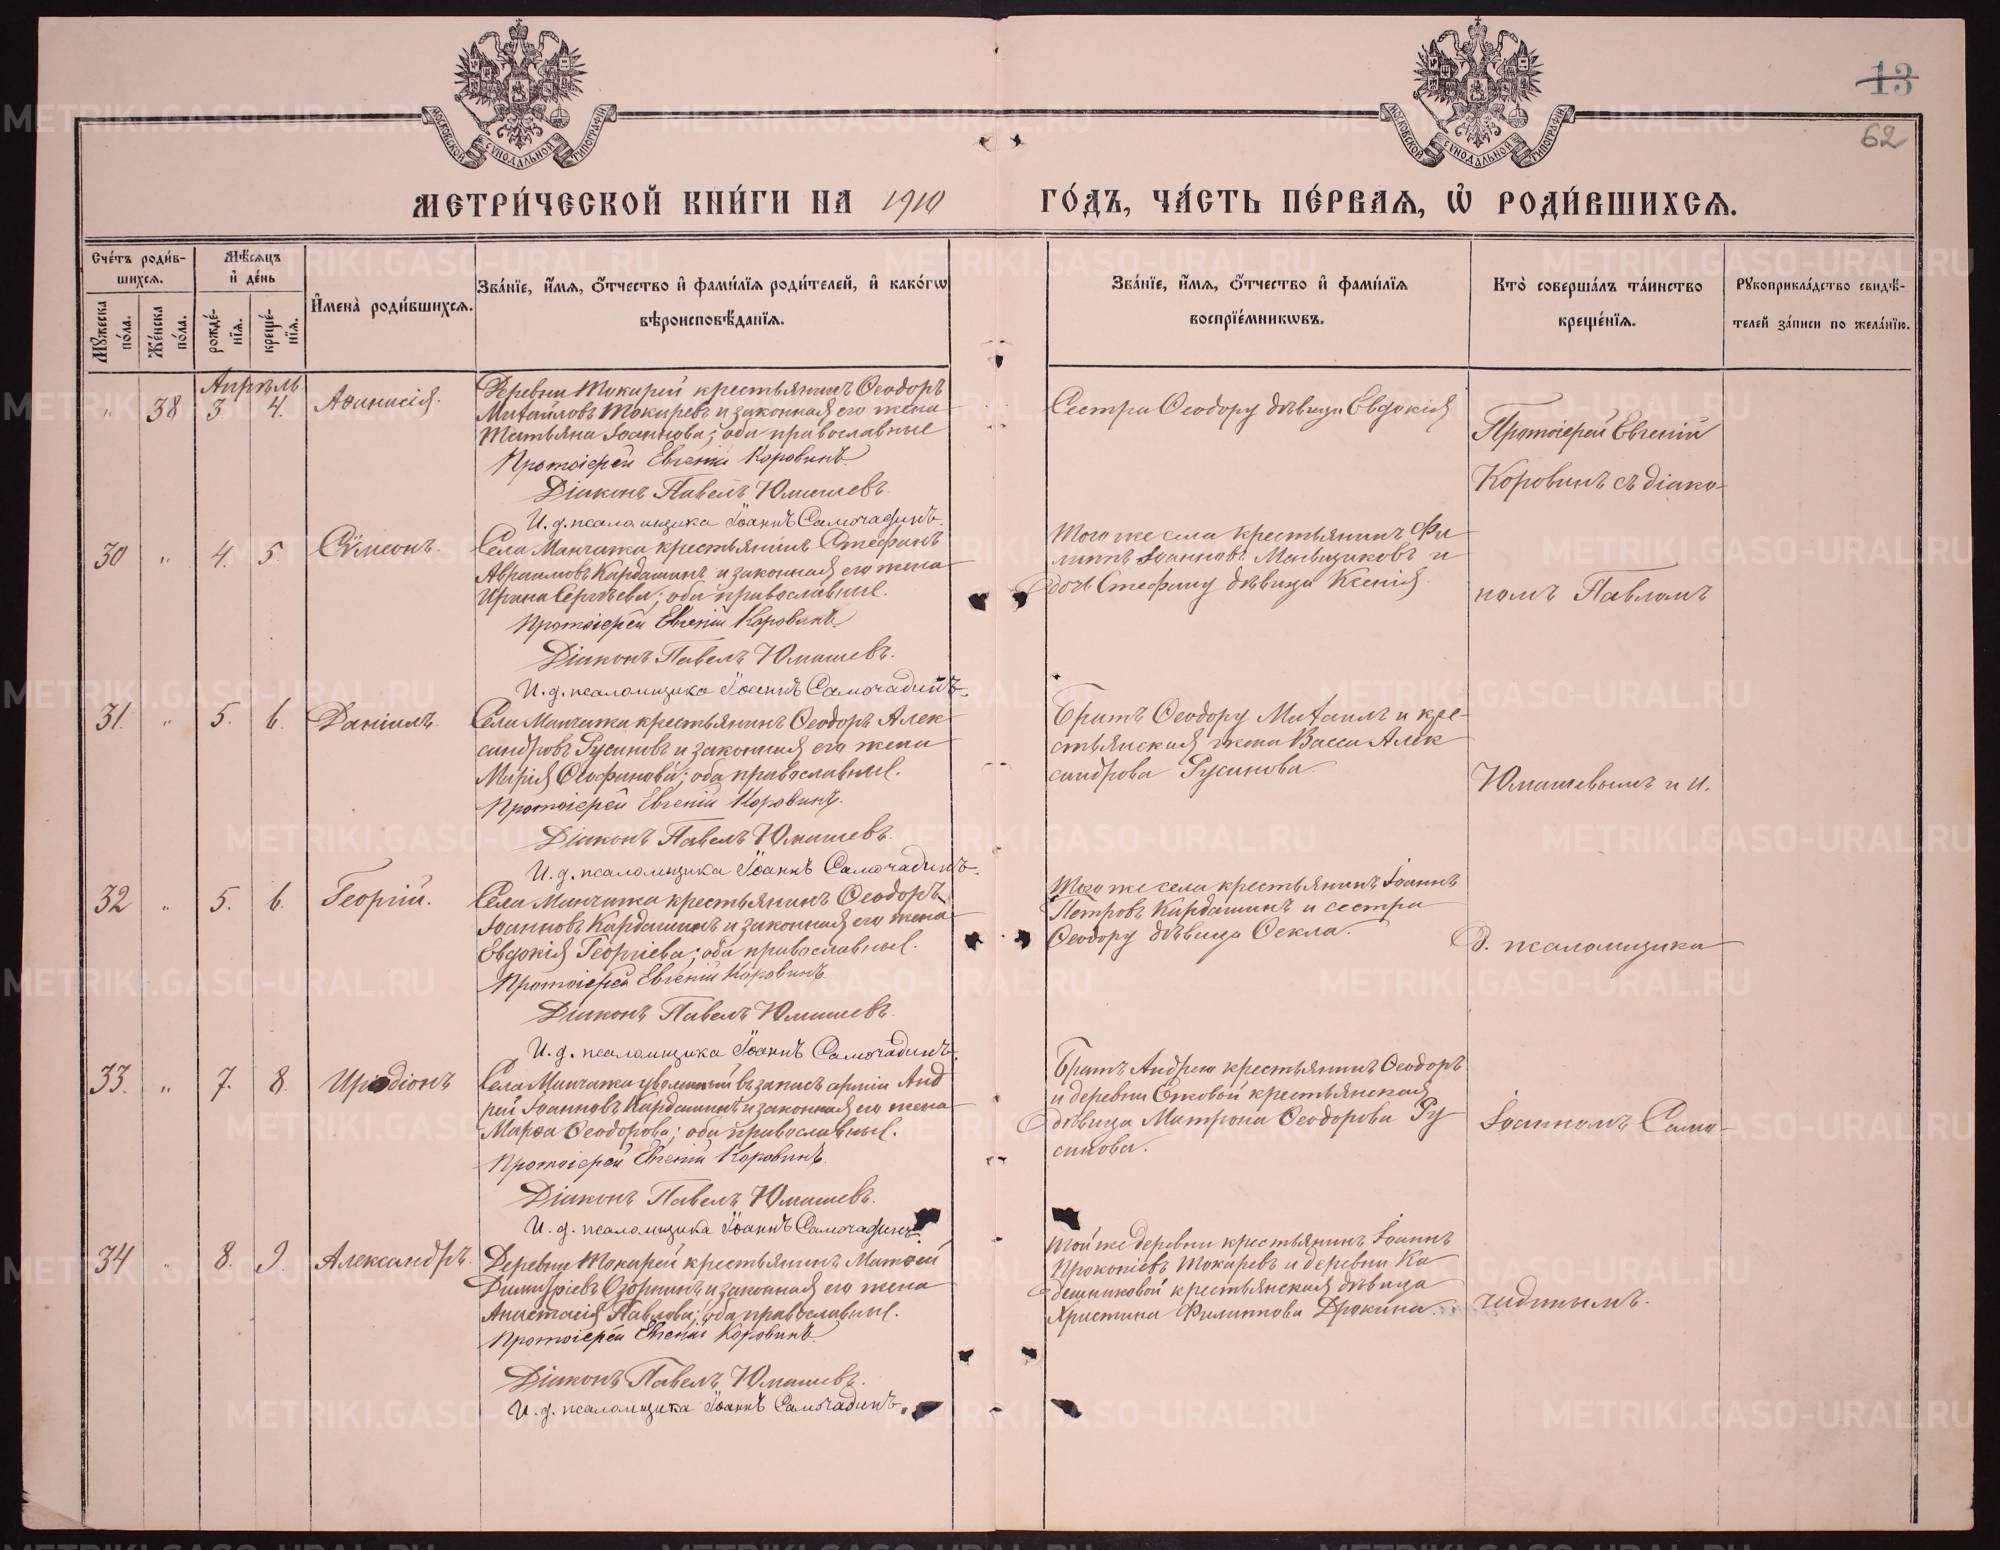 МОСКОВСКОЙ СѴНОДАЛЬНОЙ ТИПОГРАФІИ
МОСКОВСКОЙ СѴНОДАЛЬНОЙ ТИПОГРАФІИ
13
62
МЕТРИ́ЧЕСКОЙ КНИ́ГИ НА 1910 ГО́ДЪ, ЧА́СТЬ ПЕ́РВАѦ, Ѽ РОДИ́ВШИХСѦ.
Сче́тъ роди́в-
шихсѧ.
Мꙋжеска по́ла.
Же́нска по́ла.
Мѣ́сѧцъ
и҆ де́нь
рожде́-
нїѧ.
креще́-
нїѧ.
И҆мена̀ роди́вшихсѧ.
Зва́нїе, и҆́мѧ, ѻ҆́тчество и҆ фами́лїѧ роди́телей, и҆ како́гѡ
вѣроисповѣ́данїѧ.
Зва́нїе, и҆́мѧ, ѻ҆́тчество и҆ фами́лїѧ
воспрїе́мникѡвъ.
Кто̀ соверша́лъ та́инство
креще́нїѧ.
Рꙋкоприкла́дство свидѣ́-
телей за́писи по жела́нїю.
Апрѣль
" 38 3 4. Аѳанасія.
Деревни Токарей крестьянинъ Ѳеодоръ
Михайловъ Токаревъ и законная его жена
Татьяна Іоаннова; оба православные
Протоіерей Евгеній Коровинъ.
Діаконъ Павелъ Юмашевъ.
И. д. псаломщика Іоаннъ Самочадинъ.
Сестра Ѳеодору дѣвица Евдокія
Протоіерей Евгеній
Коровинъ съ діако-
30 " 4. 5. Сѵмеонъ.
Села Манчажа крестьянинъ Стефанъ
Авраамовъ Кардашинъ и законная его жена
Ирина Сергѣева; оба православные.
Протоіерей Евгеній Коровинъ.
Діаконъ Павелъ Юмашевъ.
И. д. псаломщика Іоаннъ Самочадинъ.
Того же села крестьянинъ Фи-
липпъ Іоанновъ Мальщиковъ и
дочь Стефану дѣвица Ксенія
номъ Павломъ
31. " 5. 6. Даніилъ.
Села Манчажа крестьянинъ Ѳеодоръ Алек
сандровъ Русиновъ и законная его жена
Марія Стефанова; оба православные.
Протоіерей Евгеній Коровинъ.
Діаконъ Павелъ Юмашевъ.
И. д. псаломщика Іоаннъ Самочадинъ.
Братъ Ѳеодору Михаилъ и кре-
стьянская жена Васса Алек
сандрова Русинова.
Юмашевымъ и и.
32 " 5. 6. Георгій.
Села Манчажа крестьянинъ Ѳеодоръ
Іоанновъ Кардашинъ и законная его жена
Евдокія Георгіева; оба православные.
Протоіерей Евгеній Коровинъ
Діаконъ Павелъ Юмашевъ.
И. д. псаломщика Іоаннъ Самочадинъ.
Того же села крестьянинъ Іоаннъ
Петровъ Кардашинъ и сестра
Ѳеодору дѣвица Ѳекла.
д. псаломщика
33. " 7. 8. Иродіонъ
Села Манчажа уволенный въ запасъ арміи Анд
рей Іоанновъ Кардашинъ и законная его жена
Марѳа Ѳеодорова; оба православные.
Протоіерей Евгеній Коровинъ.
Діаконъ Павелъ Юмашевъ.
И. д. псаломщика Іоаннъ Самочадинъ.
Братъ Андрею крестьянинъ Ѳеодоръ
и деревни Елковой крестьянская
дѣвица Матрона Ѳеодорова Ру
синова.
Іоанномъ Само-
34 " 8. 9. Александръ.
Деревни Токарей крестьянинъ Матѳей
Димитріевъ Озорнинъ и законная его жена
Анастасія Павлова; оба православные.
Протоіерей Евгеній Коровинъ.
Діаконъ Павелъ Юмашевъ.
И. д. псаломщика Іоаннъ Самочадинъ.
Той же деревни крестьянинъ Іоаннъ
Прокопіевъ Токаревъ и деревни Ка
дешниковой крестьянская дѣвица
Христина Филиппова Дрокина.
чадинымъ.
METRIKI.GASO-URAL.RU